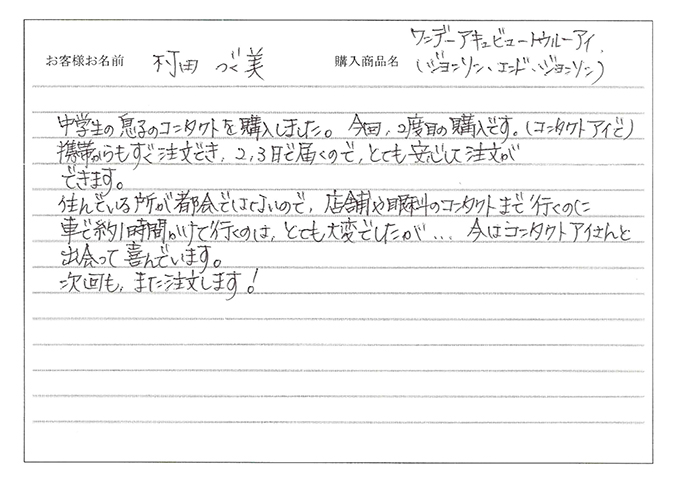 お客様お名前 村田 づく美 購入商品名 ワンデーアキュビュートゥルーアイ.
(ジョンソン、エンド、ジョンソン)
中学生の息子のコンタクトを購入しました。 今回、2度目の購入です。(コンタクトアイで)
携帯からもすぐ注文でき、2,3日で届くので、とても安心して注文が
できます。
住んでいる所が都会ではないので、店舗や眼科のコンタクトまで行くのに
車で約1時間かけて行くのは、とても大変でしたが… 今はコンタクトアイさんと
出会って喜んでいます。
次回も、また注文します!